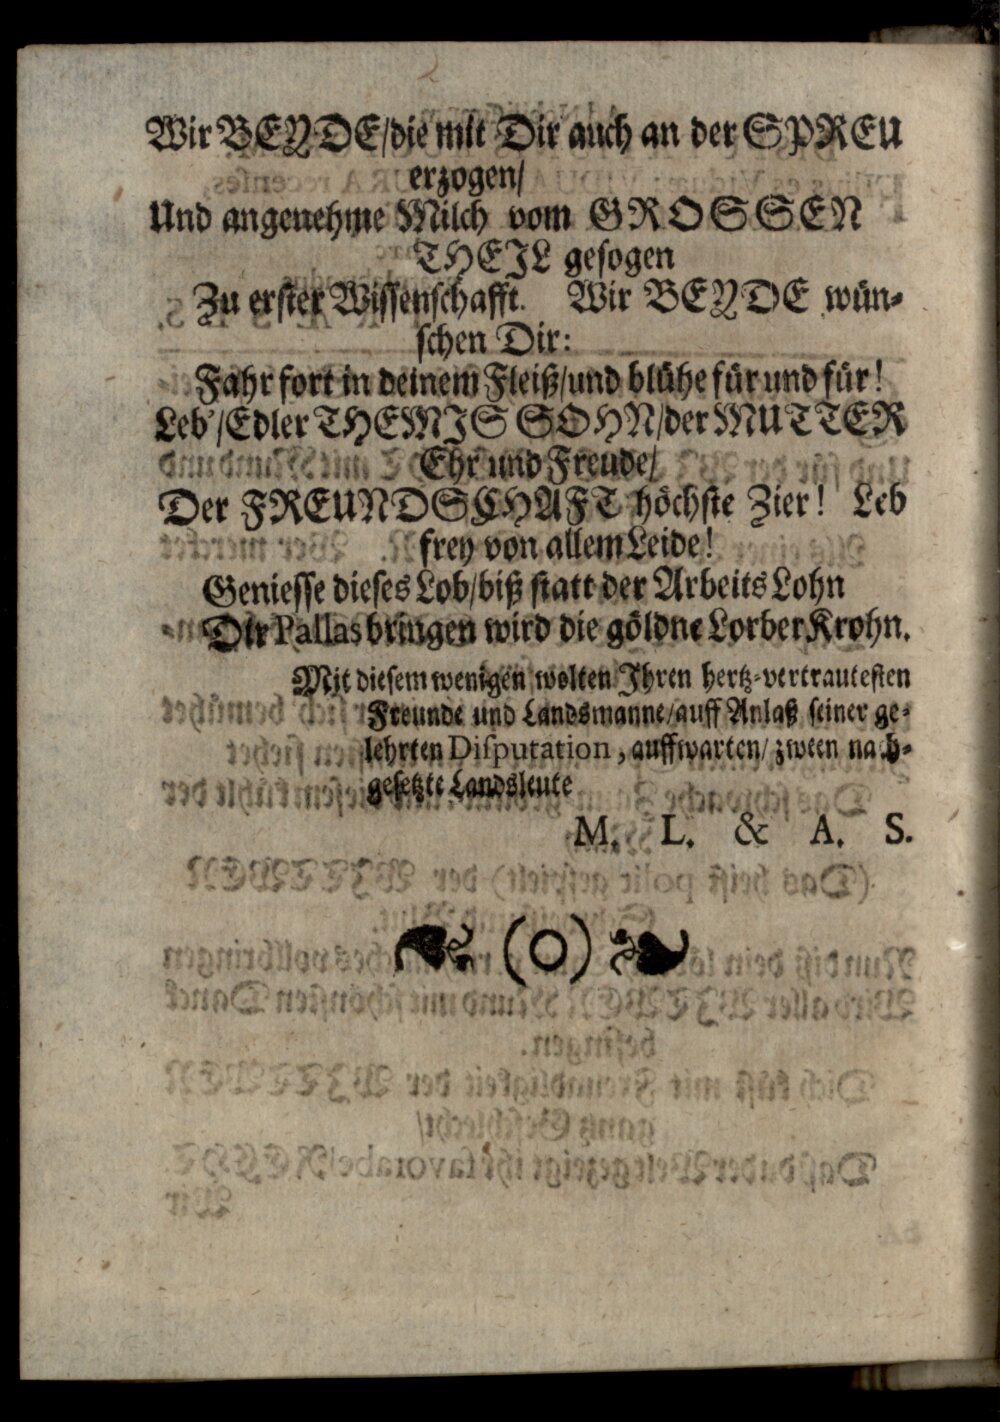 Wir BEYDE/die mit Dir auch an der SPREU
erzogen/
Und angenehme Milch vom GROSSEN
THEJL gesogen
Zu erster Wissenschafft. Wir BEYDE wün-
schen Dir:
Fahr fort in deinem Fleiß/und blühe für und für!
Leb'/Edler THEMJS SOHN/der MUTTER
Ehr und Freude/
Der FREUNDSCHAFT höchste Zier! Leb
frey von allem Leide!
Geniesse dieses Lob/biß statt der Arbeits Lohn
Dir Pallas bringen wird die göldne Lorber Krohn.
Mit diesem wenigen wolten Jhren hertz-vertrautesten
Freunde und Landsmanne/auff Anlaß seiner ge-
lehrten Disputation, auffwarten/zween nach-
gesetzte Landsleute
M. L. & A. S.
(O)